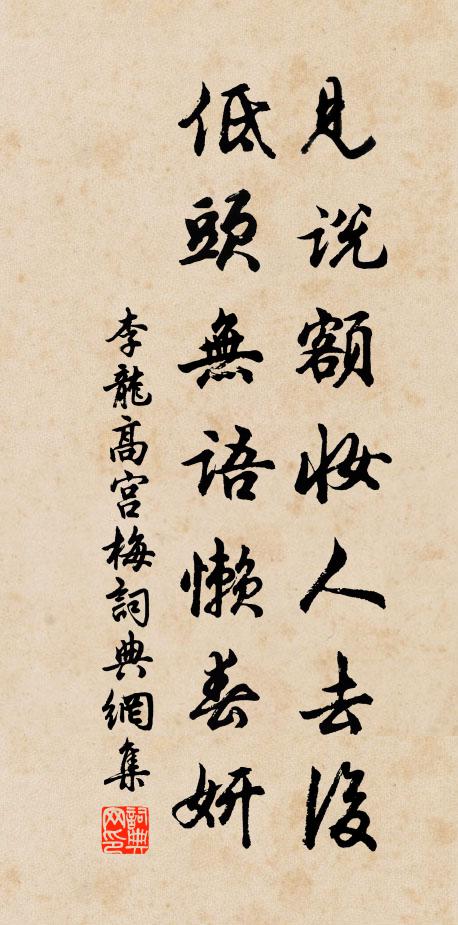 見説額妝人去後
低頭無語懶春妍
李龍高宮梅詞典網集
詞典網印